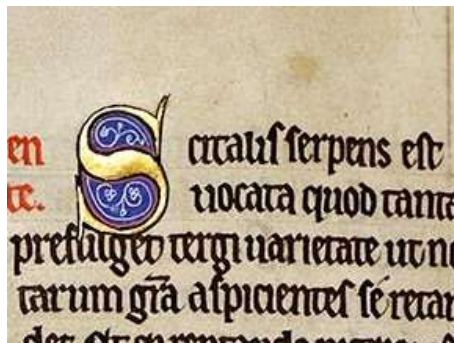 en Scitalis serpens est
te. uocata quod tanta
prefulget tergi uarietate ut no
tarum gr̄a aspicientes se retar